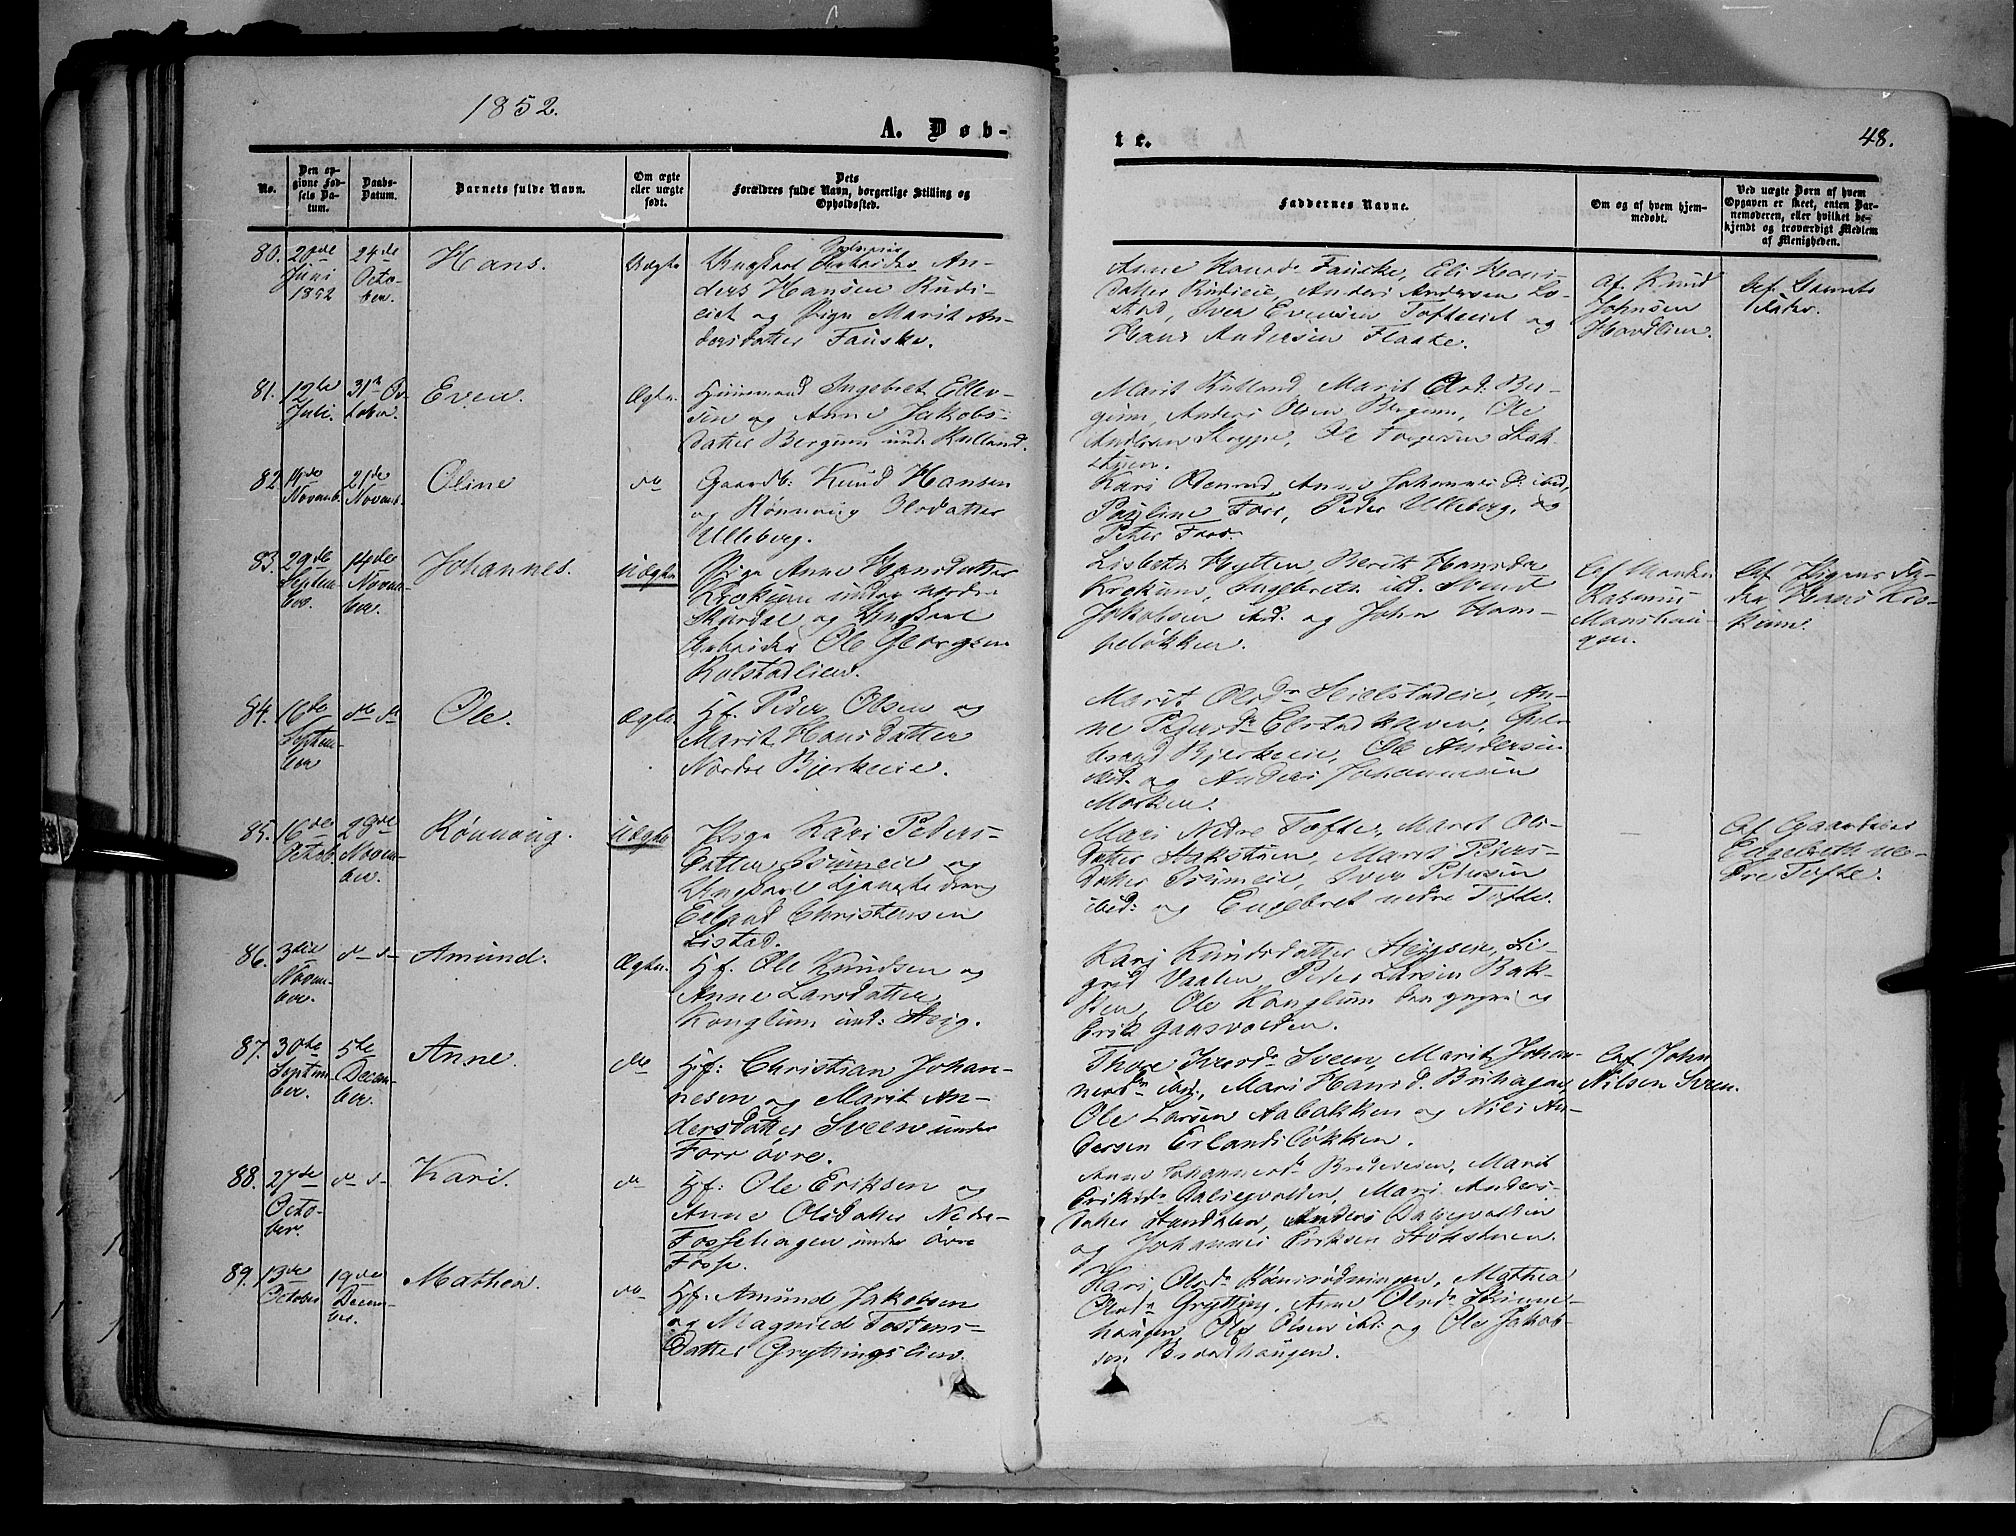 1852.
A. Døb-
te.
48.
No.
Den op-
givne Fød-
sels Da-
tum.
Daabs-
Datum.
Barnets fulde Navn.
Om ægte
eller uægte
født.
Dets
Forældres fulde Navn, borgerlige Stilling og
Opholdssted.
Faddernes Navne.
Om og af hvem hjem-
medøbt.
Ved uægte Børn af hvem
Opgaven er skeet, enten Bar-
nemoderen, eller hvilket be-
kjendt og troværdigt Medlem
af Menigheden.
80.
20de
Juni
1852
24de
Octo-
ber.
Hans.
Uægte
Ungkarl An-
ders Hansen Rudi-
eiet og Pige Marit An-
dersdatter Fauske.
Anne Hansd. Fauske, Eli Hans-
datter Rudieie, Anders Andersen Lo-
stad, Iver Evensen Tofteeiet og
Hans Andersen Flaate.
Af Knud
Johnsen
Haardlien.
81.
12te
Juli.
31te Oc-
tober.
Even.
Ægte.
Huusmand Ingebret Ellev-
sen og Anne Jakobs-
datter Bergum und. Kulland.
Marit Kulland, Marit Olsd. Ber-
gum, Anders Olsen Bergum, Ole
Andersen Skryge, Ole
82.
14de
Novemb.
21de
Novemb.
Oline
do
Gaardb: Knud Hansen
og Rønnoug Olsdatter
Ulleberg.
Kari Odenrud, Anne Johannesd. ibid,
Pauline Forr, Peder Ulleberg, og
Peter Forr
83.
29de
Septem-
ber.
14de
Novem-
ber.
Johannes.
Uægte
Pige Anne Hansdatter
Krøkum under nordre
Skurdal og Ungkarl
Arbeider Ole Georgsen
Rolstadlien.
Lisbeth Hytten, Berit Hansda
Krøkum, Ingebreth ibd. Svend
Jakobsen ibd. og John Ham-
peløkken.
Af
Rasmus
Manshau-
gen.
Af Pigens Fa-
der Hans Krø-
kum.
84.
16de
Septem-
ber
do do
Ole.
Ægte.
Hf. Peder Olsen og
Marit Hansdatter
Nordre Bjerkeie.
Marit Olsda Hielstadeie, An-
ne Pedersda Elstadkleven, Gul-
brand Bjerkeie, Ole Andersen
ibid. og Anders Johannesen
Moeken.
85.
16de
Octob.
28de
Novem-
ber.
Rønnoug.
Uægte
Pige Kari Peders-
datter Brumeie og
Ungkarl Tjenestedreng
Erland Christensen
Listad.
Mari Nedre Tofte, Marit Ols-
datter Stokstien, Marit Peders-
datter Brumeie, Iver Pedersen
ibid: og Engebret nedre Tofte.
Af Gaardbruger
Engebreth ne-
dre Tofte.
86.
3die
Novem-
ber.
do d-
Amund.
Ægte.
Hf. Ole Knudsen og
Anne Larsdatter
Konglum und: Steig.
Kari Knudsdatter Steigsen, Si-
grid Vaalen, Peder Larsen Bak-
ken, Ole Konglum den yngre og
Erik Gaasvolden.
87.
30te
Septem-
ber.
5te
Decem-
ber.
Anne.
do
Hf: Christian Johan-
nesen og Marit An-
dersdatter Sveen under
Forr øvre.
Thore Iversda Sveen, Marit Johan-
nesda ibid, Mari Hansd. Buhagen
Ole Larsen Aabakken og Nils An-
dersen Erlandsløkken.
Af John
Nilsen Sveen.
88.
27de
October.
do d-
Kari.
do
Hf: Ole Eriksen og
Anne Olsdatter Nedre
Fossehagen under øvre
Fosse.
Anne Johannesda Bredeveien, Marit
Eriksda Dalsegvolden, Mari Anders-
datter Haudalen, Anders Dalsegvolden
og Johannes Eriksen Stokstuen.
89.
13de
October
19de
Decem-
ber.
Mathea.
do
Hf: Amund Jakobsen
og Magnild Tostens-
datter Gryttingslien.
Kari Olsda Mathea
Olsda Grytting, Anne Olsda Skinne-
haugen, Ole Olsen ibid: og Ole Jakob-
sen Brodshaugen.